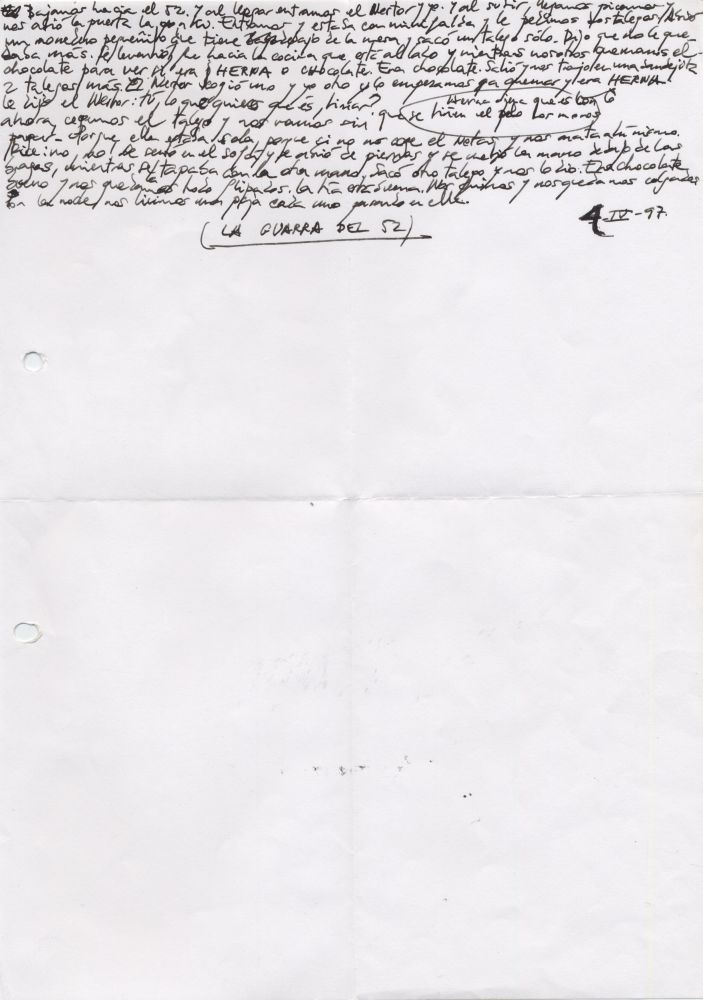 Bajamos hacia el 52. Y al llegar entramos el Nertor y yo. Y al subir, llegamos picamos y
nos abrió la puerta la Entramos y estaba con minifalda y le pedimos dos talegos. Abrió
un monedero pequeñito que tiene debajo de la mesa y sacó un talego sólo. Dijo que no le que-
daba más. Se levantó, fue hacia la cocina que está al lado y mientras nosotros quemamos el
chocolate para ver si era HERNA o CHOCOLATE. Era chocolate. Salió y nos trajo en una bandejita
2 talegos más. El Nertor cogió uno y yo otro y lo empezamos pa quemar y era HERNA.
le dijo el Nertor: Tú, lo que quieres que es, timar? Herna dice que es con lo
ahora cogemos el talego y nos vamos sin que se tiñen el pelo los moros
pagar. Porque ella estaba sola porque si no no coge el Notas y nos mata allí mismo.
Dice: no, no! Se sentó en el sofá y se abrió de piernas y se metió la mano debajo de las
bragas, mientras se tapaba con la otra mano, sacó otro talego y nos lo dio. Era chocolate
bueno y nos quedamos flipados. La tía está buena. Nos fuimos y nos quedamos colgados
Por la noche, nos hicimos una paja cada uno pensando en ella.
(LA GUARRA DEL 52)
4-IV-97.